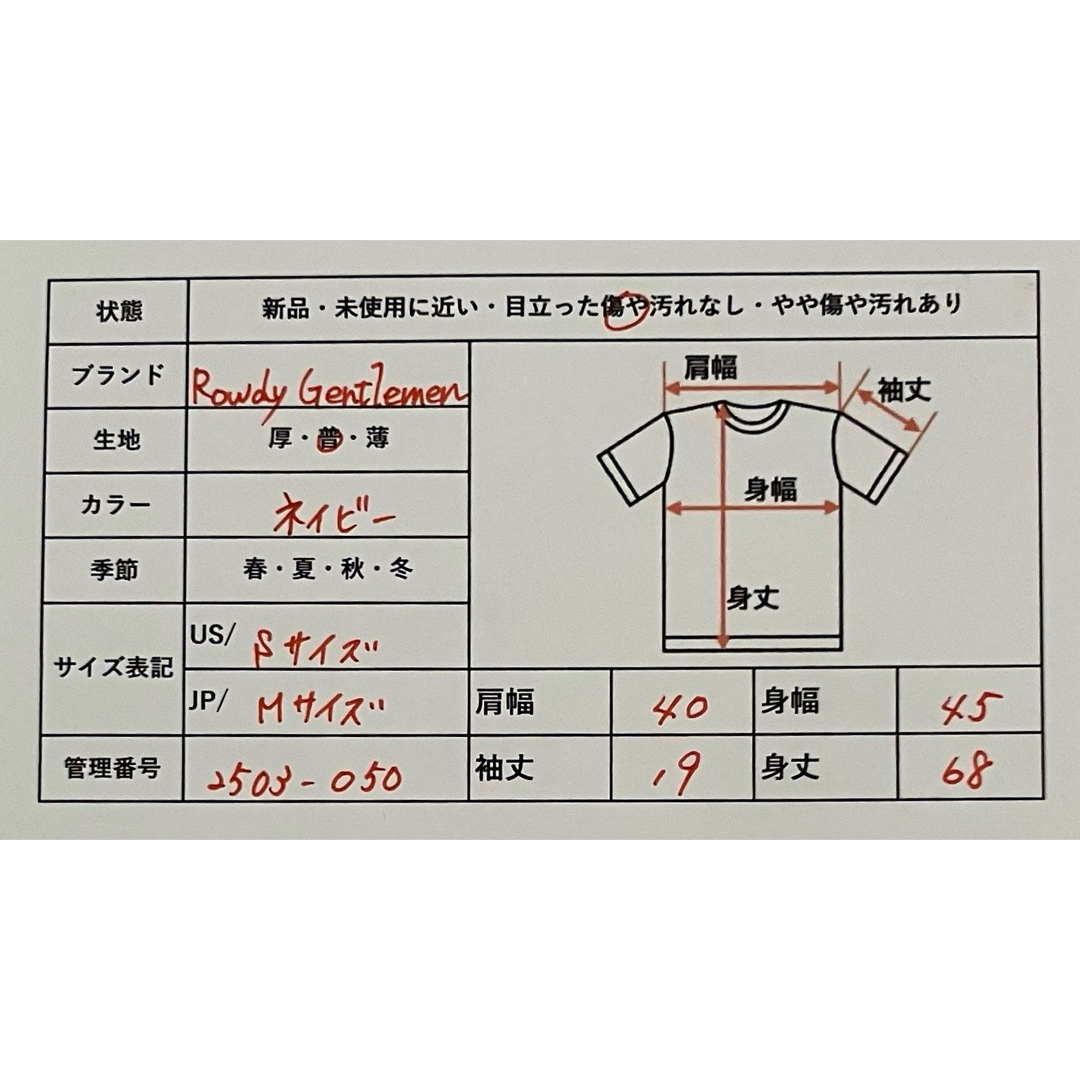 状態 新品・未使用に近い・目立った傷や汚れなし・やや傷や汚れあり
ブランド Rowdy Gentlemen
生地 厚・普・薄
カラー ネイビー
季節 春・夏・秋・冬
サイズ表記
US/ Sサイズ
JP/ Mサイズ
管理番号 2503-050
肩幅
袖丈
身幅
身丈
肩幅 40 身幅 45
袖丈 19 身丈 68